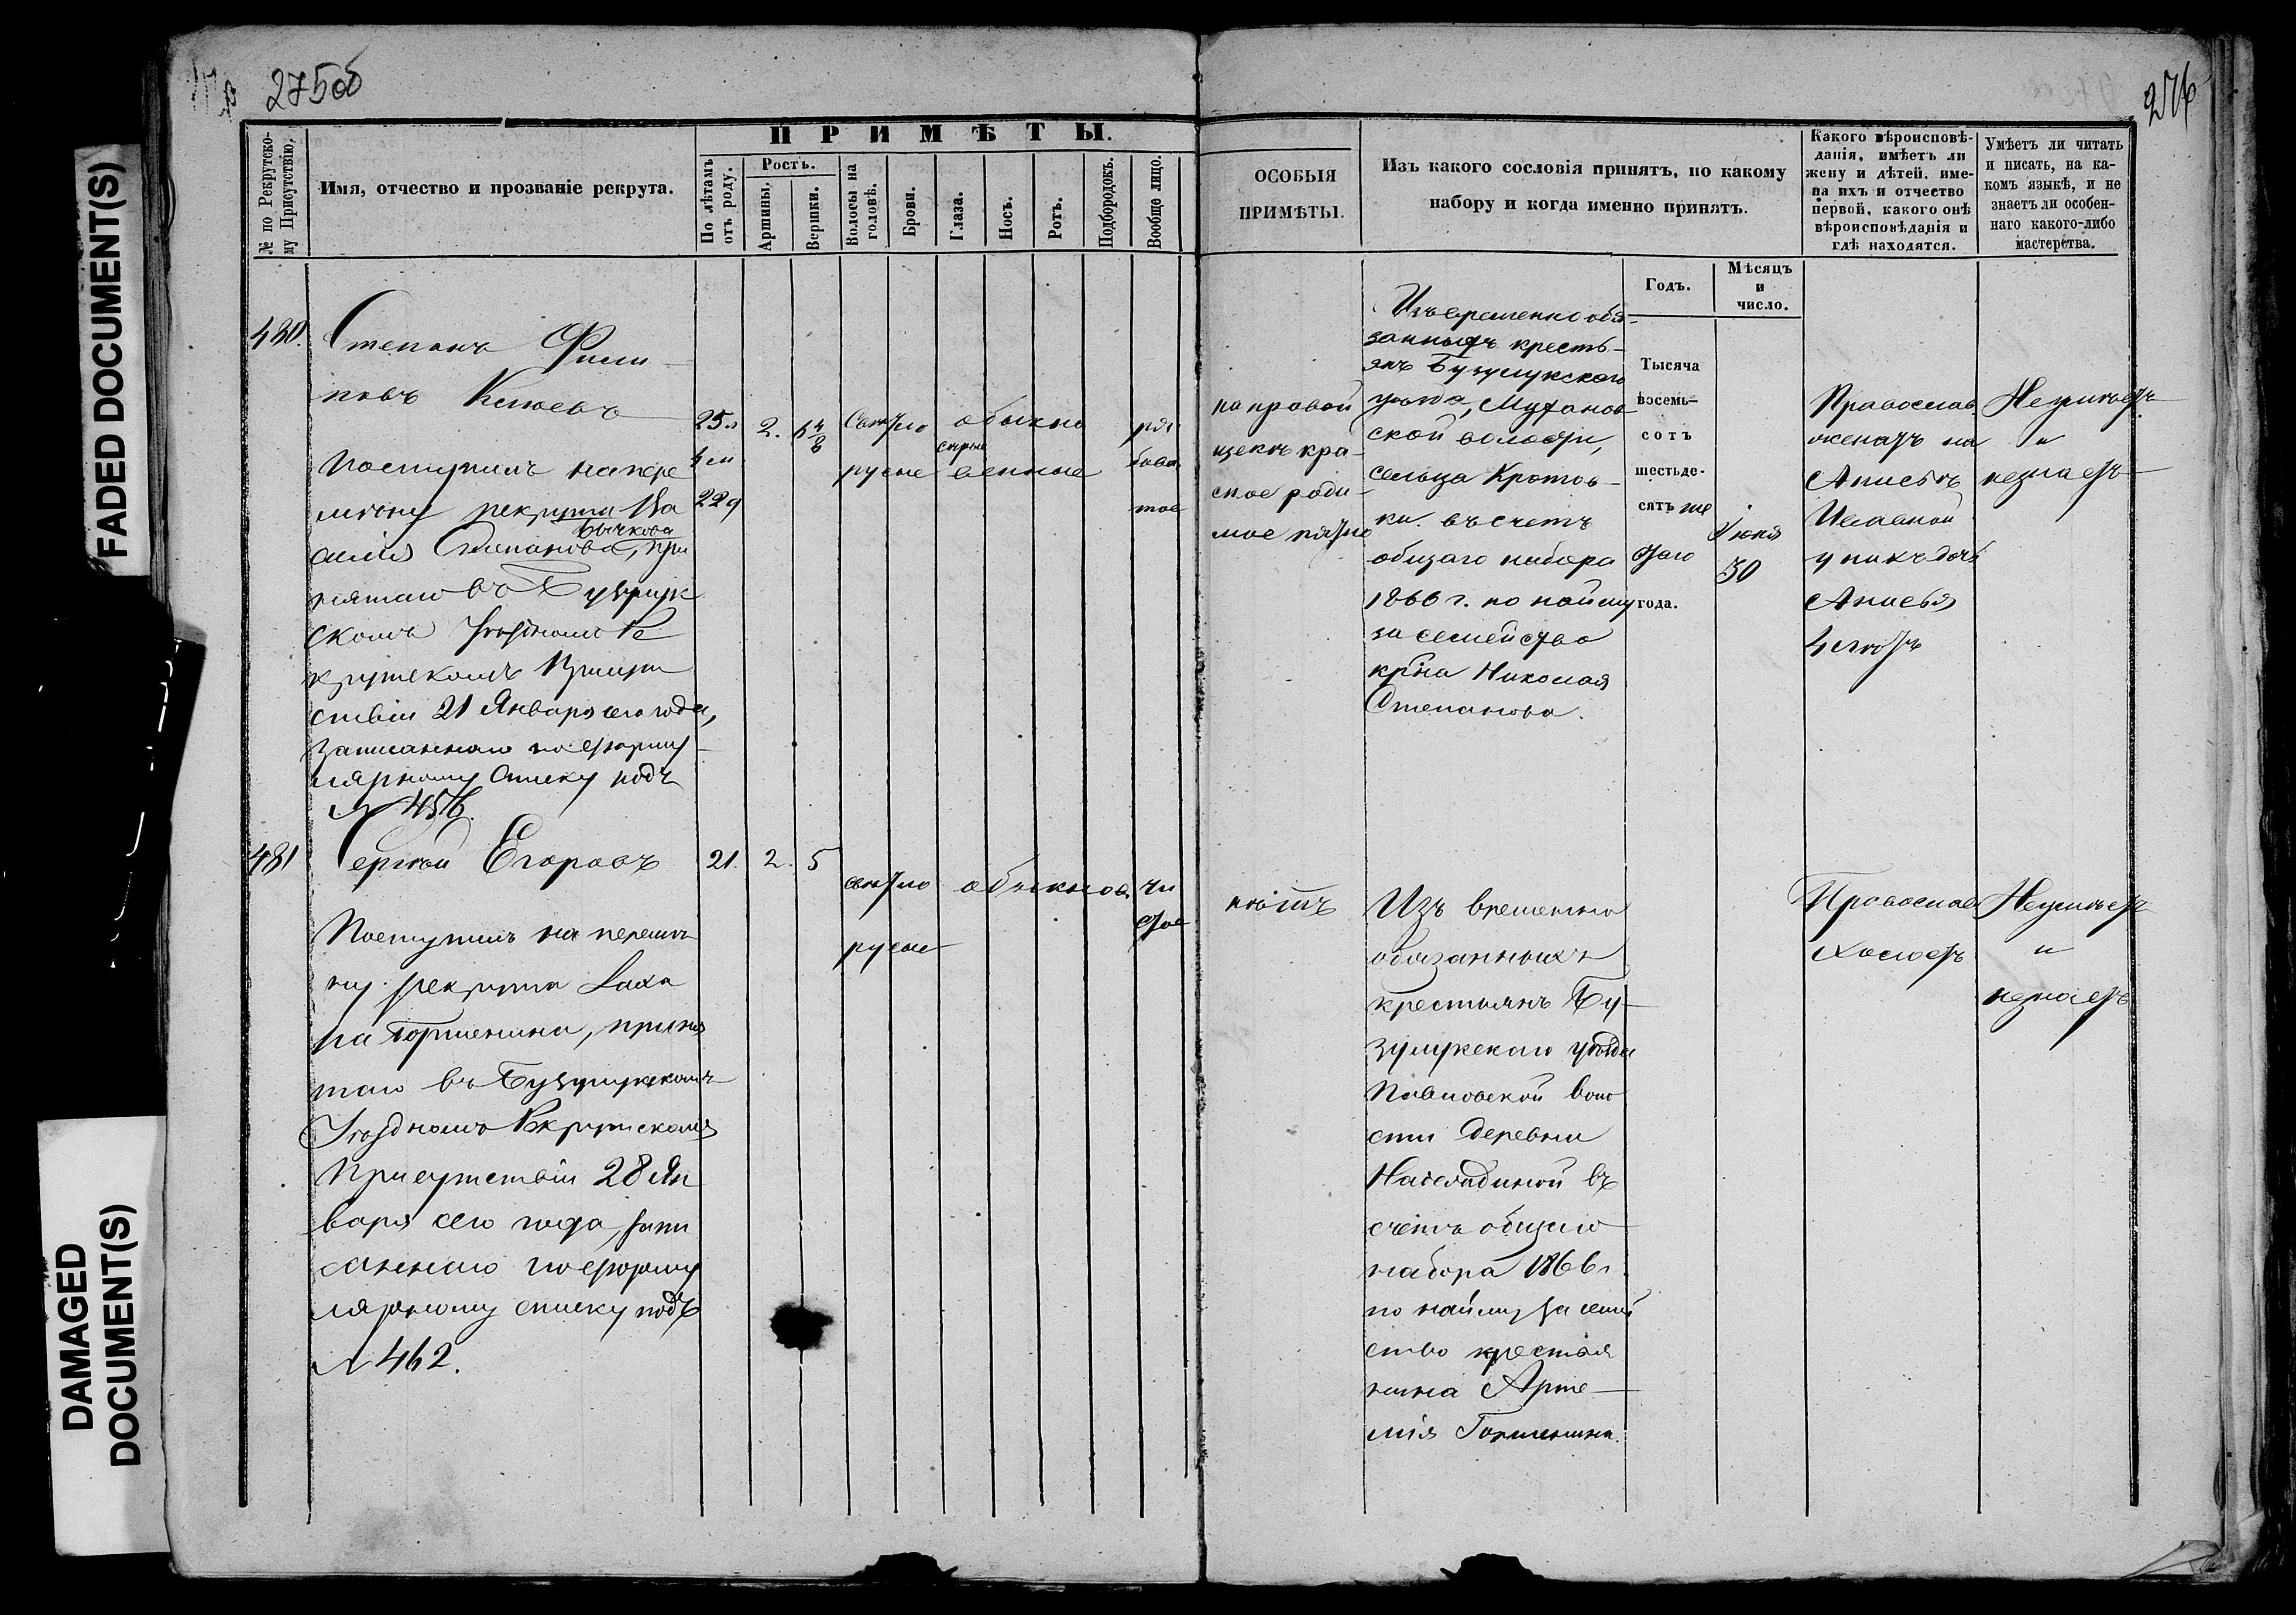 275об
276
FADED DOCUMENT(S)
DAMAGED
DOCUMENT(S)
ПРИМѢТЫ.
№ по Рекрутско-
му Присутствію.
Имя, отчество и прозваніе рекрута.
По лѣтамъ
отъ роду.
Ростъ.
Аршины.
Вершки.
Волосы на
головѣ.
Брови.
Глаза.
Носъ.
Ротъ.
Подбородокъ.
Вообще лицо.
ОСОБЫЯ
ПРИМѢТЫ.
Изъ какого сословія принятъ, по какому
набору и когда именно принятъ.
Годъ.
Мѣсяцъ
и
число.
Какого вѣроисповѣ-
данія, имѣетъ ли
жену и дѣтей, име-
на ихъ и отчество
первой, какого онѣ
вѣроисповѣданія и
гдѣ находятся.
Умѣетъ ли читать
и писать, на ка-
комъ языкѣ, и не
знаетъ ли особен-
наго какого-либо
мастерства.
480.
Степанъ Фили
повъ
Поступилъ на пере
мѣну рекрута Ва
Бычкова
силія Степанова, при
нятаго въ Бузулук
скомъ Уѣздномъ Ре
крутскомъ Присут
ствіи 21 Января сего года,
записаннаго по форму
лярному списку подъ
№ 456.
25 л
4 м
22 д
2.
6 4/8
Свѣтло
русые
обыкно
сѣрые
венные
ря
бова
тое
на правой
щекѣ кра-
сное роди-
мое пятно
Изъ временно обя-
занныхъ кресть-
янъ Бузулукскаго
уѣзда, Муханов
ской волости,
сельца Кротов-
ки. въ счетъ
общаго набора
1866 г. по найму
за семейство
крᵗна Николая
Степанова.
Тысяча
восемь-
сотъ
шестьде-
сятъ ше
стаго
года.
Июня
30
Православ
женатъ на
Анисьѣ
Ивановой
у нихъ дочь
Анисья
4 лѣтъ
Неумѣетъ
и
незнаетъ
481
Сергѣй Егоровъ
Поступилъ на перемѣ
ну рекрута Заха
ра Горшенина, приня
таго въ Бузулукскомъ
Уѣздномъ Рекрутскомъ
Присутствіи 28 Ян
варя сего года, запи
саннаго по форму
лярному списку подъ
№ 462.
21.
2.
5
свѣтло
русые
обыкнов.
чи
стое
нѣтъ
Изъ временно
обязанныхъ
крестьянъ Бу-
зулукскаго уѣзда
Павловской воло
сти деревни
въ
счетъ общаго
набора 1866 г.
по найму за семей
ство крестья
нина Арте-
мія Горшенина.
Православ
холостъ
Неумѣетъ
и
незнаетъ